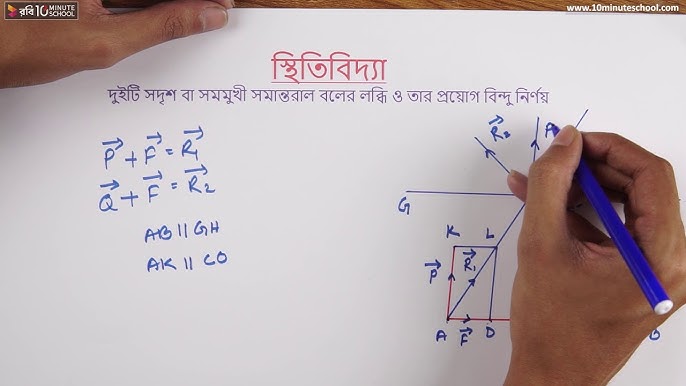 রবি 10 MINUTE SCHOOL
www.10minuteschool.com
স্থিতিবিদ্যা
দুইটি সদৃশ বা সমমুখী সমান্তরাল বলের লব্ধি ও তার প্রয়োগ বিন্দু নির্ণয়
P⃗ + F⃗ = R⃗₁
Q⃗ + F⃗ = R⃗₂
AB || GH
AK || CO
R⃗₂
G
K L
P⃗ R⃗₁
A F⃗ D